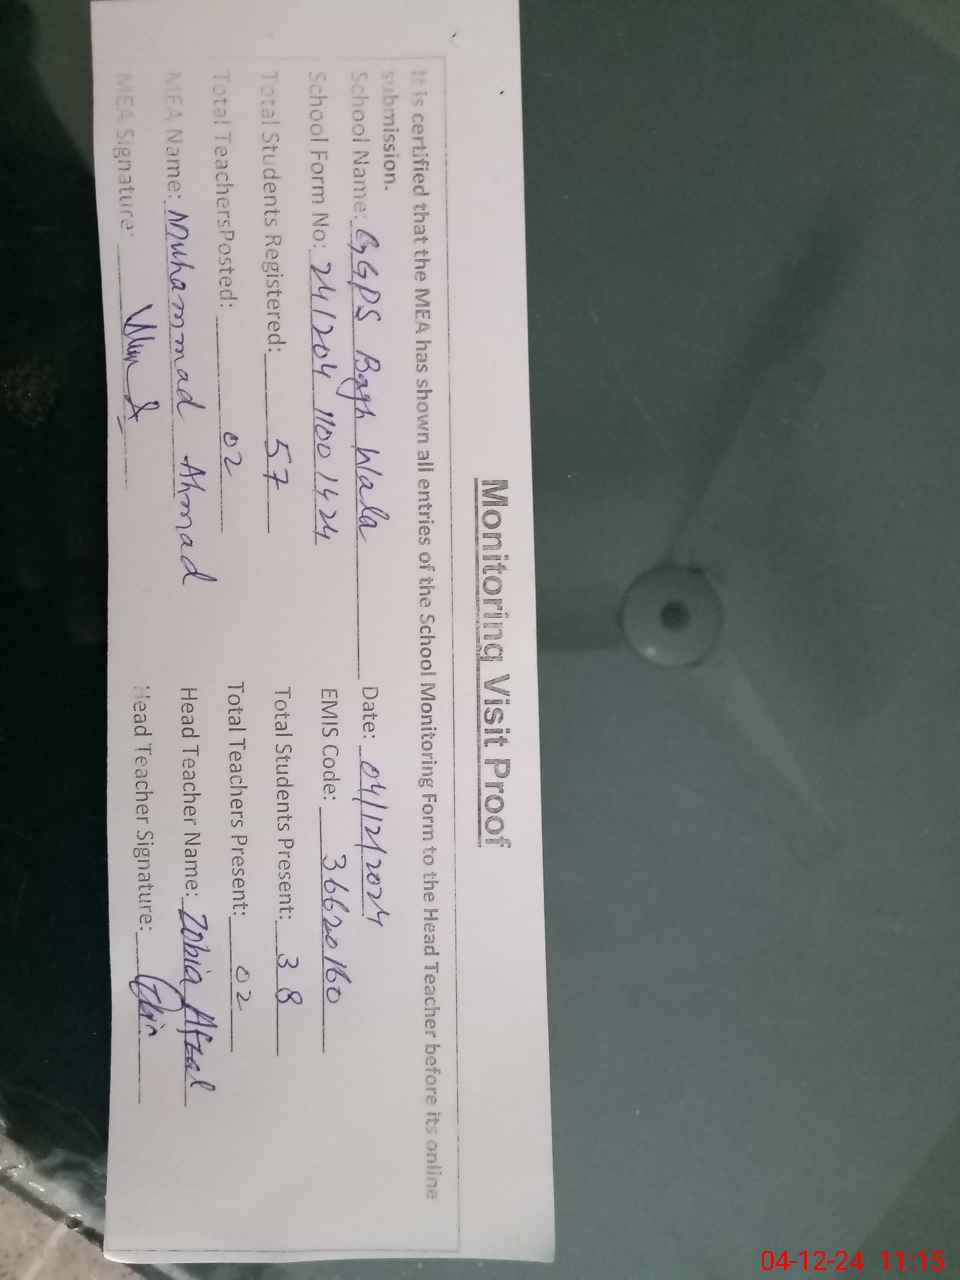 Monitoring Visit Proof
It is certified that the MEA has shown all entries of the School Monitoring Form to the Head Teacher before its online
submission.
School Name: GGPS Bagh Wala Date: 04/12/2024
School Form No: 24120411001424 EMIS Code: 36620160
Total Students Registered: 57 Total Students Present: 38
Total TeachersPosted: 02 Total Teachers Present: 02
MEA Name: Muhammad Ahmad Head Teacher Name: Zobia Afzal
MEA Signature: Head Teacher Signature:
04-12-24 11:15